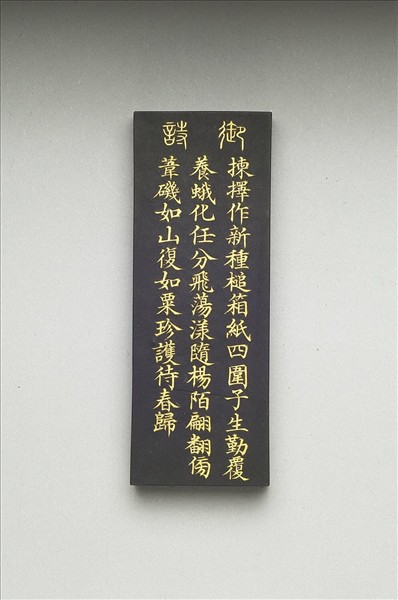 御詩
揀擇作新種槌箱紙四圍子生勤覆
養蛾化任分飛蕩漾隨楊陌翩翻傍
葦磯如山復如粟珍護待春歸